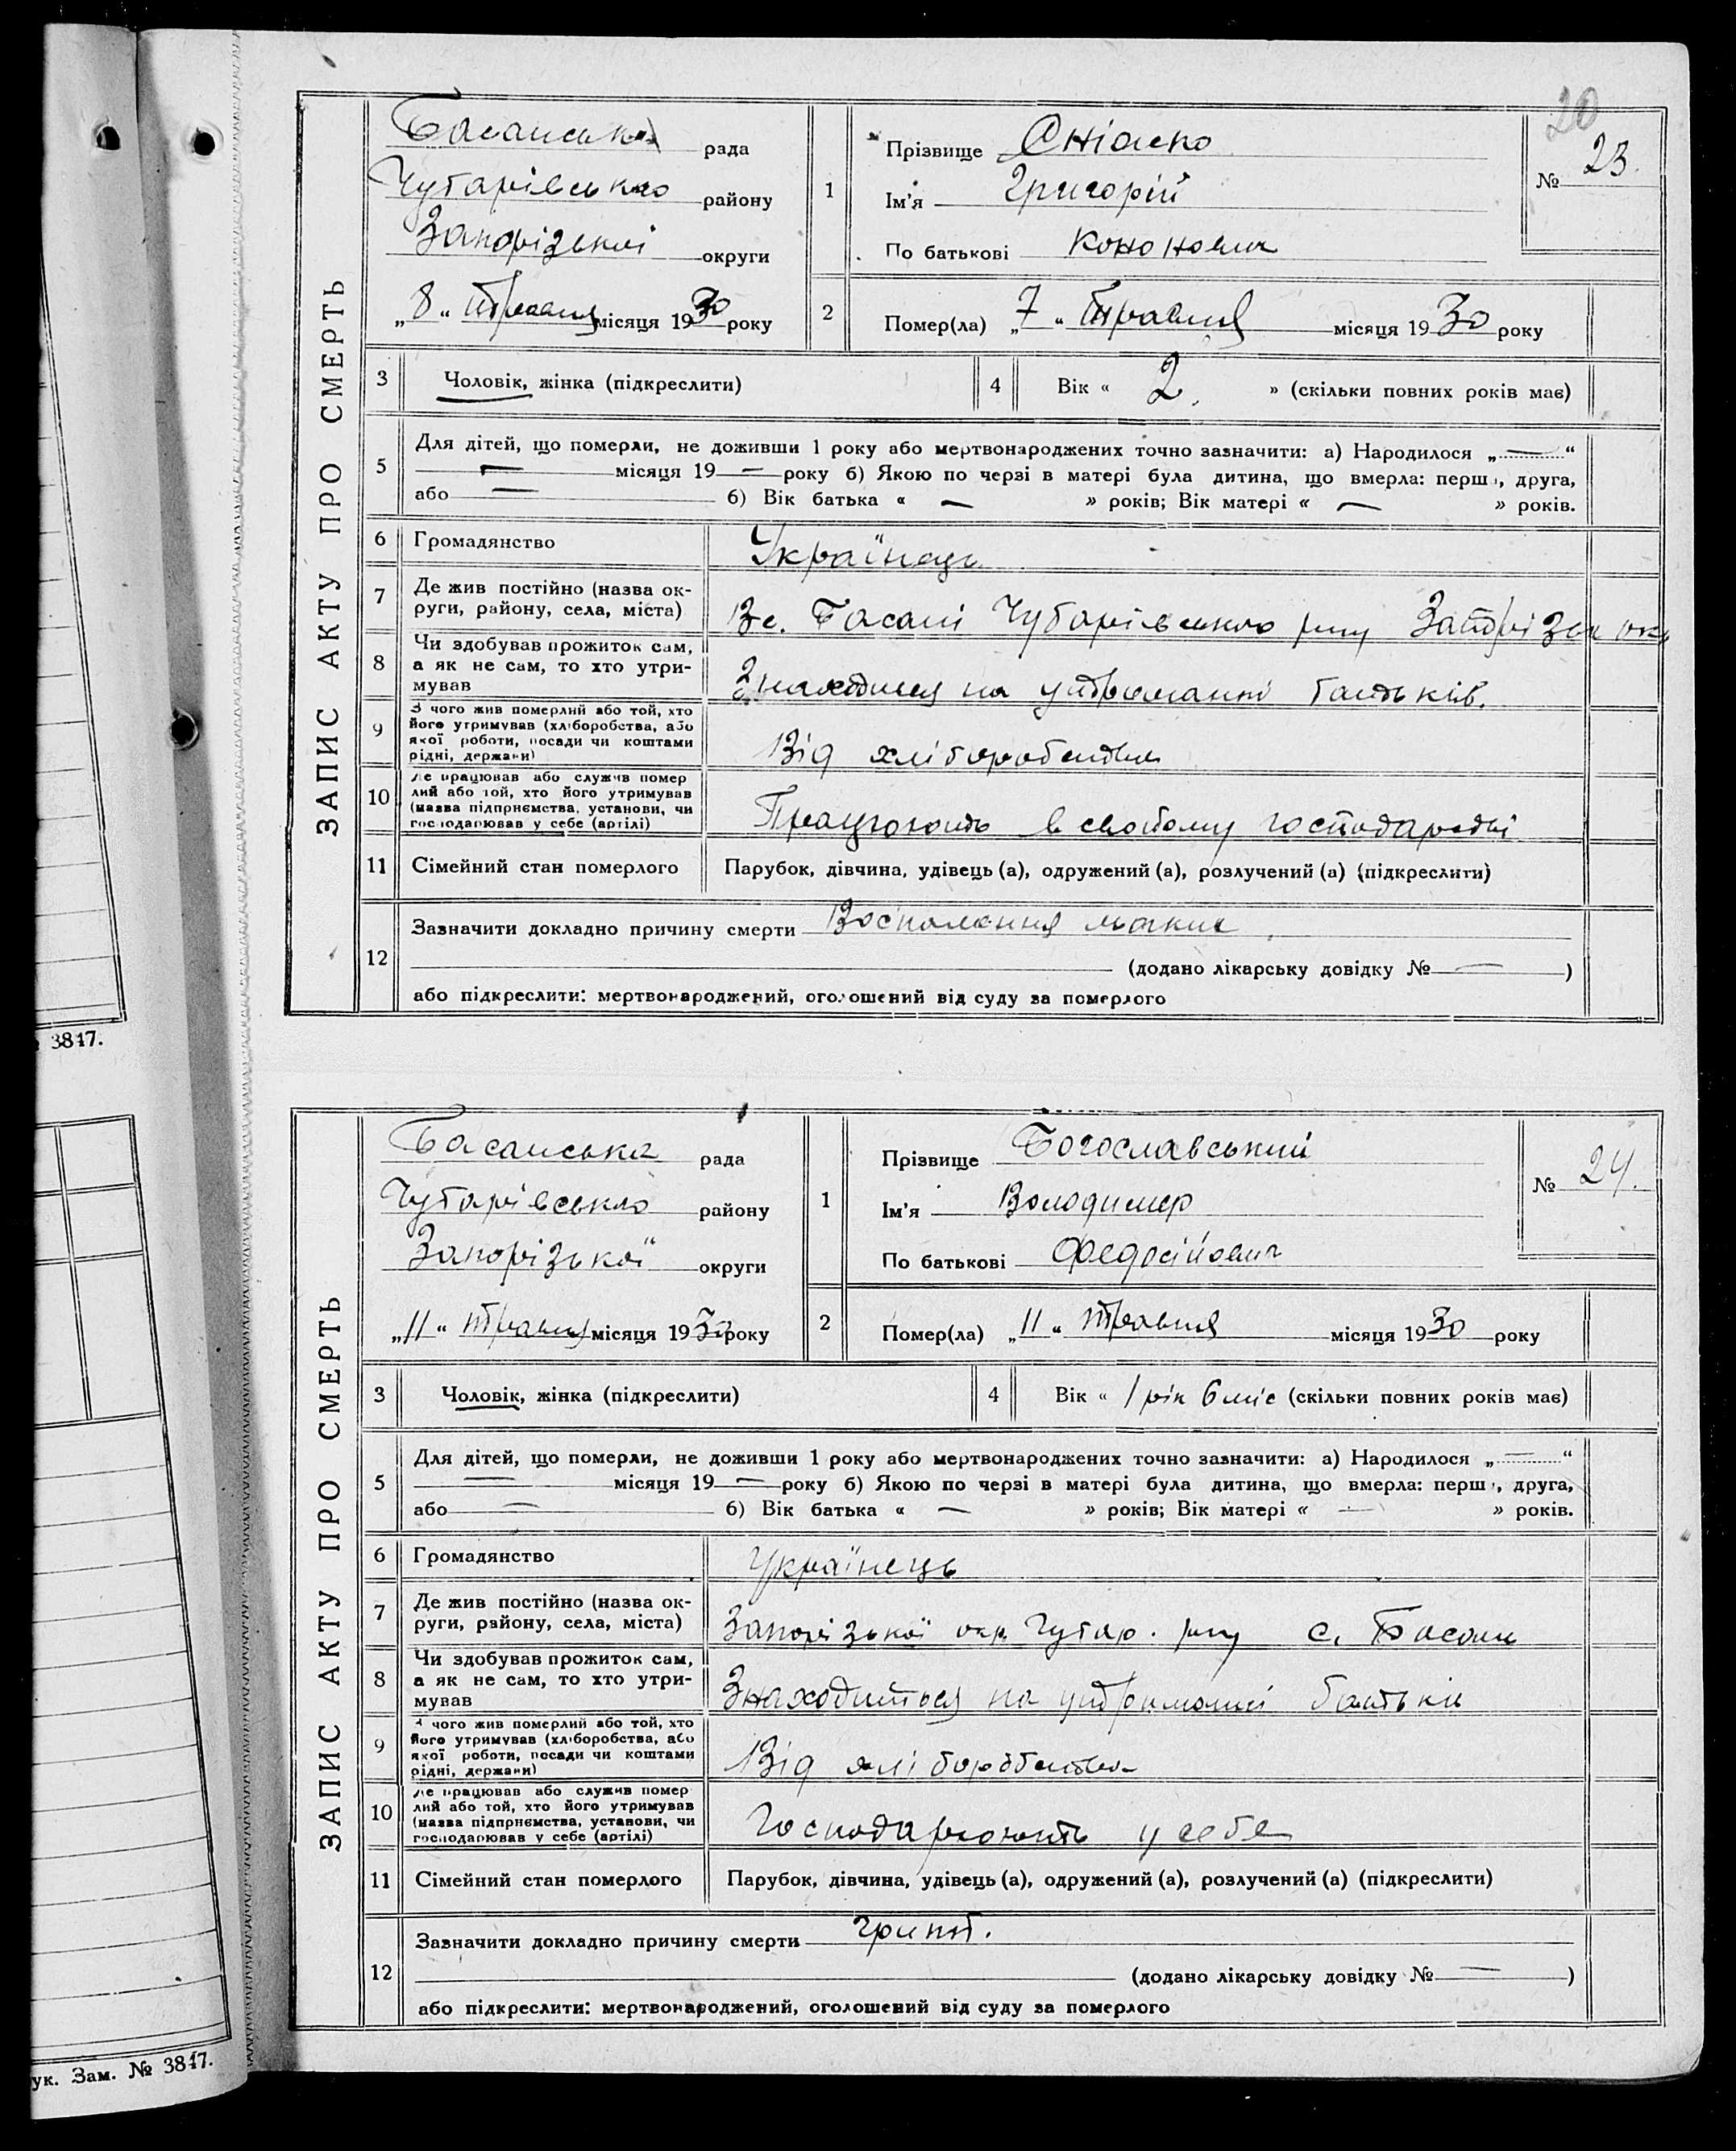 20
ЗАПИС АКТУ ПРО СМЕРТЬ
Басанська рада
Чубарівсько району
Запорізької округи
„8“ травня місяця 1930 року
1
Прізвище Сніжко
Ім'я Григорій
По батькові Кононович
№ 23.
2
Помер(ла) „7“ травня місяця 1930 року
3 Чоловік, жінка (підкреслити)
4 Вік « 2. » (скільки повних років має)
5 Для дітей, що померли, не доживши 1 року або мертвонароджених точно зазначити: а) Народилося „—“
— місяця 19 — року б) Якою по черзі в матері була дитина, що вмерла: перша, друга,
або — б) Вік батька « — » років; Вік матері « — » років.
6 Громадянство Українець
7 Де жив постійно (назва ок-
руги, району, села, міста)
В с. Басані Чубарівського р-ну Запоріжск окр
8 Чи здобував прожиток сам,
а як не сам, то хто утри-
мував
Знаходився на утриманні батьків.
9 З чого жив померлий або той, хто
його утримував (хліборобства, або
якої роботи, посади чи коштами
рідні, держави)
Від хліборобства
10 Де працював або служив помер
лий або той, хто його утримував
(назва підприємства, установи, чи
господарював у себе (артілі)
Працюють в своєому господарстві
11 Сімейний стан померлого Парубок, дівчина, удівець (а), одружений (а), розлучений (а) (підкреслити)
12 Зазначити докладно причину смерти Воспоління
(додано лікарську довідку № — )
або підкреслити: мертвонароджений, оголошений від суду за померлого
3817.
ЗАПИС АКТУ ПРО СМЕРТЬ
Басанська рада
Чубарівсько району
Запорізької округи
„11“ травня місяця 1930 року
1
Прізвище Богославський
Ім'я Володимер
По батькові Федосійович
№ 24.
2
Помер(ла) „11“ травня місяця 1930 року
3 Чоловік, жінка (підкреслити)
4 Вік « 1 рік 6 міс (скільки повних років має)
5 Для дітей, що померли, не доживши 1 року або мертвонароджених точно зазначити: а) Народилося „—“
— місяця 19 — року б) Якою по черзі в матері була дитина, що вмерла: перша, друга,
або — б) Вік батька « — » років; Вік матері « — » років.
6 Громадянство Українець
7 Де жив постійно (назва ок-
руги, району, села, міста)
Запорізької окр. Чубар. р-ну с. Басань
8 Чи здобував прожиток сам,
а як не сам, то хто утри-
мував
Знаходиться на утриманні батьків
9 З чого жив померлий або той, хто
його утримував (хліборобства, або
якої роботи, посади чи коштами
рідні, держави)
Від хліборобства
10 Де працював або служив помер
лий або той, хто його утримував
(назва підприємства, установи, чи
господарював у себе (артілі)
Господарюють у себе
11 Сімейний стан померлого Парубок, дівчина, удівець (а), одружений (а), розлучений (а) (підкреслити)
12 Зазначити докладно причину смерти грипп.
(додано лікарську довідку № — )
або підкреслити: мертвонароджений, оголошений від суду за померлого
ук. Зам. № 3817.